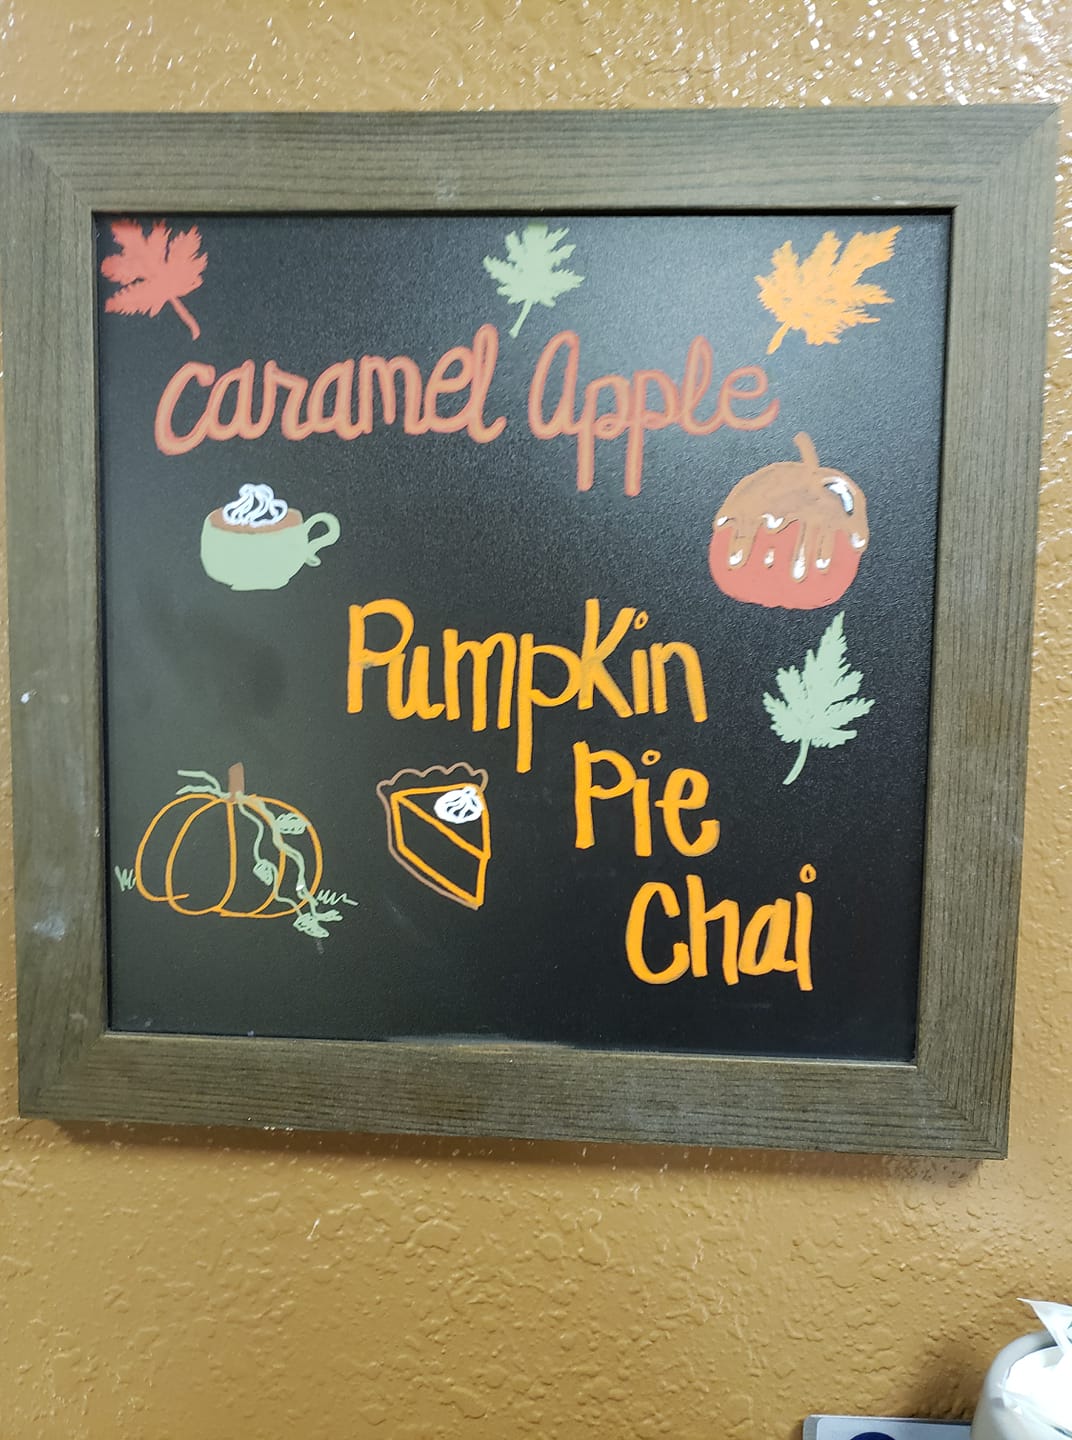 Caramel Apple
Pumpkin
Pie
Chai